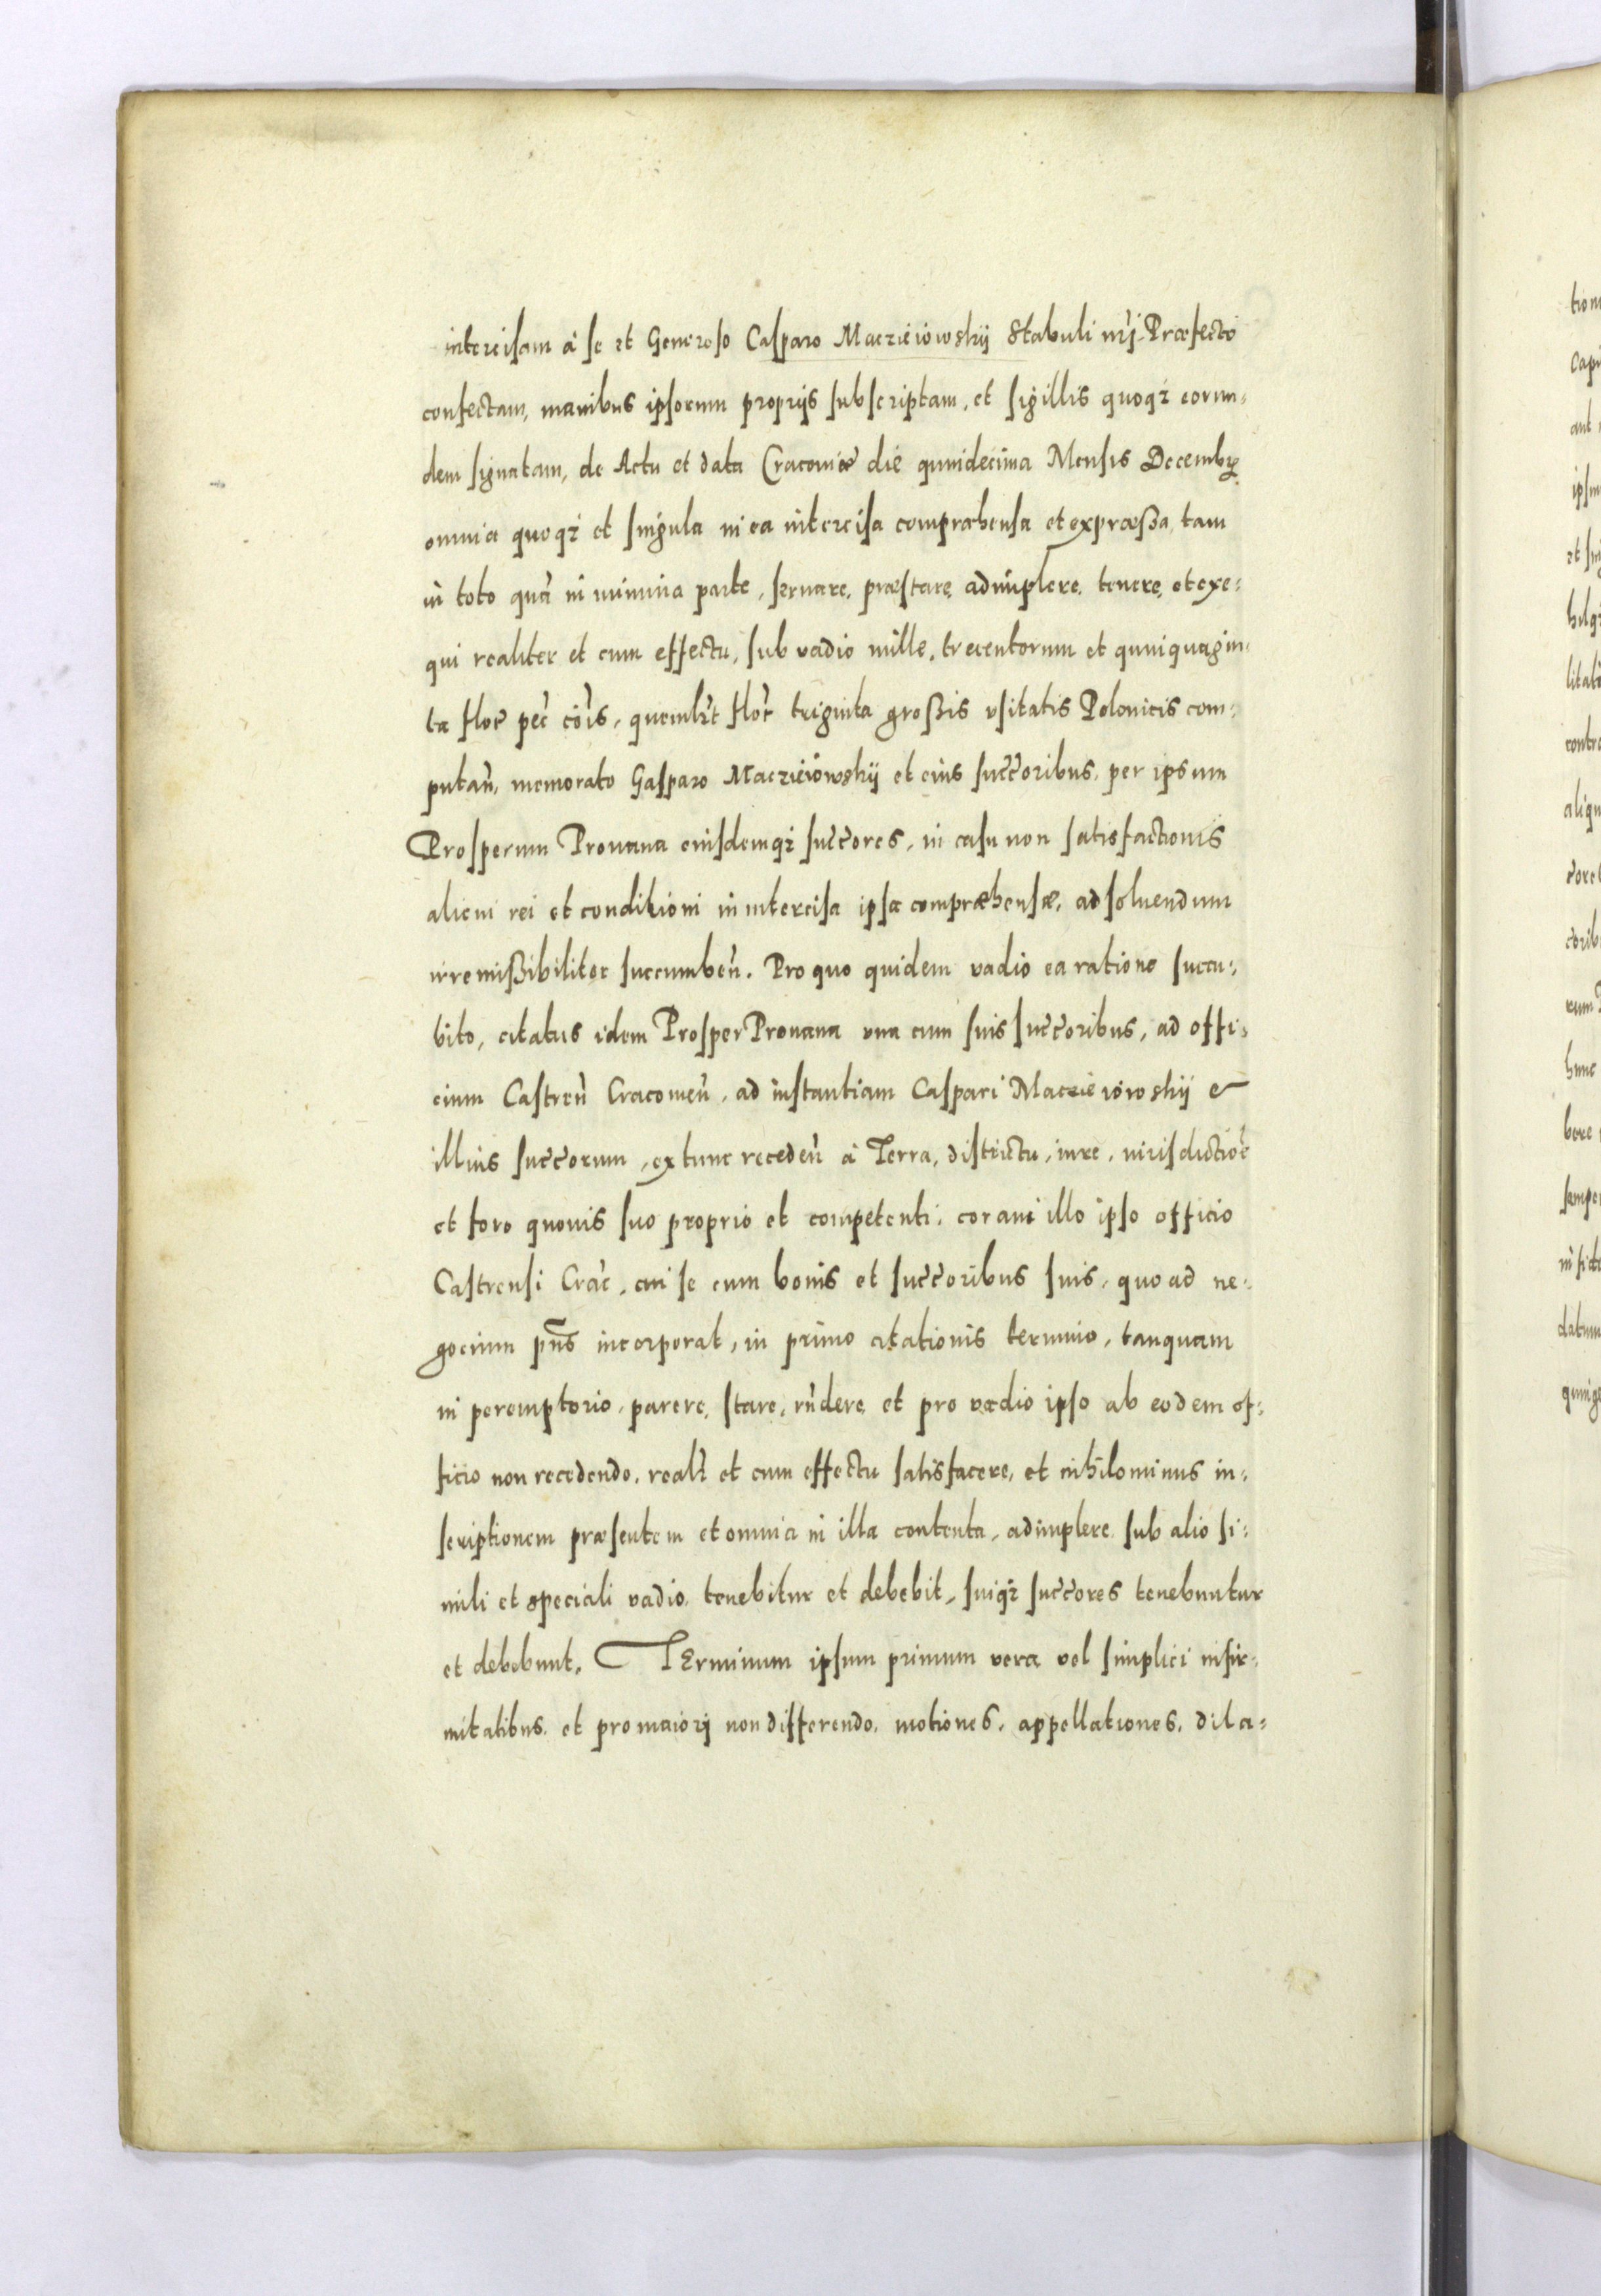 intercisam à se et Generoso Casparo Maczieiowskij Stabuli nr̃j Præfecto
confectam, manibus ipsorum proprijs subscriptam, et sigillis quoqꝫ eorun-
dem signatam, de Actu et data Cracoviæ die quindecima Mensis Decembꝝ
omnia quoqꝫ et singula in ea intercisa compræhensa et expræssa, tam
in toto quã in minima parte, seruare, præstare, adimplere, tenere, et exe-
qui realiter et cum effectu, sub vadio mille, trecentorum et quinquagin-
ta flor̃ pec̃ cõis, quemlꝫt flor̃ triginta grossis vsitatis Polonicis com-
putan̄, memorato Gasparo Maczieiowskij et eius succ̃oribus, per ipsum
Prosperum Prouana eiusdemqꝫ succ̃ores, in casu non satisfactionis
alicui rei et conditioni in intercisa ipsa compræhensæ, ad soluendum
irremissibiliter succumben̄. Pro quo quidem vadio ea ratione succu-
bito, citatus idem Prosper Prouana vna cum suis succ̃oribus, ad offi-
cium Castren̄ Cracouien̄, ad instantiam Caspari Maczieiowskij &
illius succ̃orum, ex tunc receden̄ à Terra, districtu, iure, iurisdictiõe
et foro quouis suo proprio et competenti, coram illo ipso officio
Castrensi Crac̃, cui se cum bonis et succ̃oribus suis, quo ad ne-
gocium pñs incorporat, in primo citationis termino, tanquam
in peremptorio, parere, stare, rñdere, et pro vadio ipso ab eodem of-
ficio non recedendo, realꝫ et cum effectu satisfacere, et nihilominus in-
scriptionem præsentem et omnia in illa contenta, adimplere sub alio si-
mili et speciali vadio, tenebitur et debebit, suiqꝫ succ̃ores tenebuntur
et debebunt. TErminum ipsum primum vera vel simplici infir-
mitatibus, et pro maiorj non differendo, motiones, appellationes, dila-